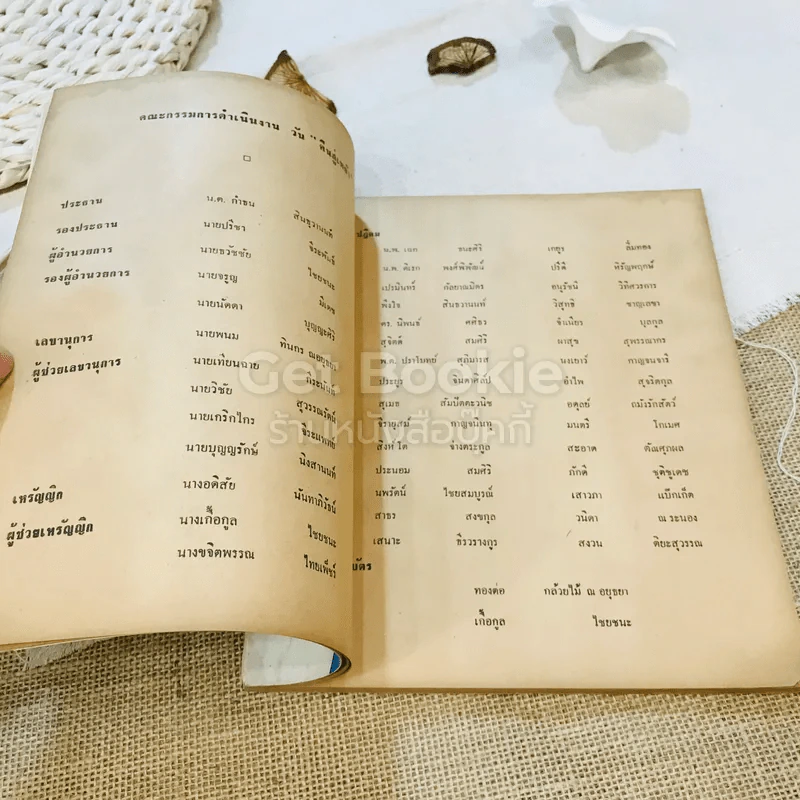 คณะกรรมการดำเนินงาน วัน "
ประธาน น.ต. กำธน สินธวานนท์
รองประธาน นายปรีชา จีระพันธ์
ผู้อำนวยการ นายธวัชชัย ไชยชนะ
รองผู้อำนวยการ นายจรูญ มีเดช
นายนัดดา บุญญะศิริ
เลขานุการ นายพนม ทินกร ณ อยุธยา
ผู้ช่วยเลขานุการ นายเทียนฉาย กีระนันทน์
นายวิชัย สุวรรณรัตน์
นายเกริกไกร จีระแพทย์
นายบุญญรักษ์ นิงสานนท์
เหรัญญิก นางอดิสัย นันทาภิวัธน์
ผู้ช่วยเหรัญญิก นางเกื้อกูล ไชยชนะ
นางขจิตพรรณ ไทยเพ็ชร์
ปฏิคม
น.พ. เอก ชนะศิริ เกยูร ลิ่มทอง
น.พ. ดิเรก พงศ์พิพัฒน์ ปรีดี หิรัญพฤกษ์
เปรมินทร์ กัลยาณมิตร อนุรัจนี วิทิศวรการ
พึงใจ สินธวานนท์ วิสุทธิ์ ชาญเลขา
ดร. นิพนธ์ ศศิธร จำเนียร บุลกูล
สุจิตต์ สมศิริ ผาสุข สุพรรณากร
พ.ต. ปราโมทย์ สุภิมารส นงเยาว์ กาญจนจารี
ประยูร จินดาศิลป์ อำไพ สุจริตกุล
สุเมธ สัมปัตตะวนิช อดุลย์ ถมังรักสัตว์
จิรายุสม์ กาญจนมกุ มนตรี โกเมศ
สิงห์โต จ่างตระกูล สะอาด ตัณศุภผล
ประนอม สมศิริ ภักดี ชุติชูเดช
นพรัตน์ ไชยสมบูรณ์ เสาวภา แบ็กเก็ต
สาธร สงขกูล วนิดา ณ ระนอง
เสนาะ ธีรวรางกูร สงวน ติยะสุวรรณ
บัตร
ทองต่อ กล้วยไม้ ณ อยุธยา
เกื้อกูล ไชยชนะ
Get Bookie
ร้านหนังสือบุ๊คกี้